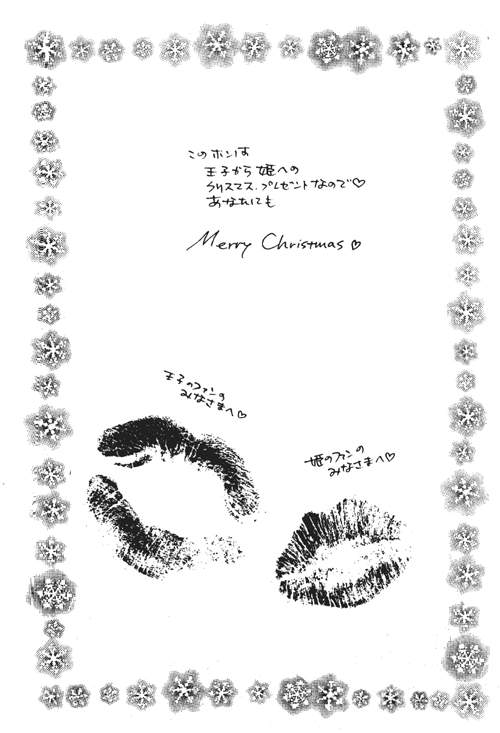 このホンは
王子から姫への
クリスマス．プレゼントなので♡
あなたにも
Merry Christmas♡
王子のファンの
みなさまへ♡
姫のファンの
みなさまへ♡